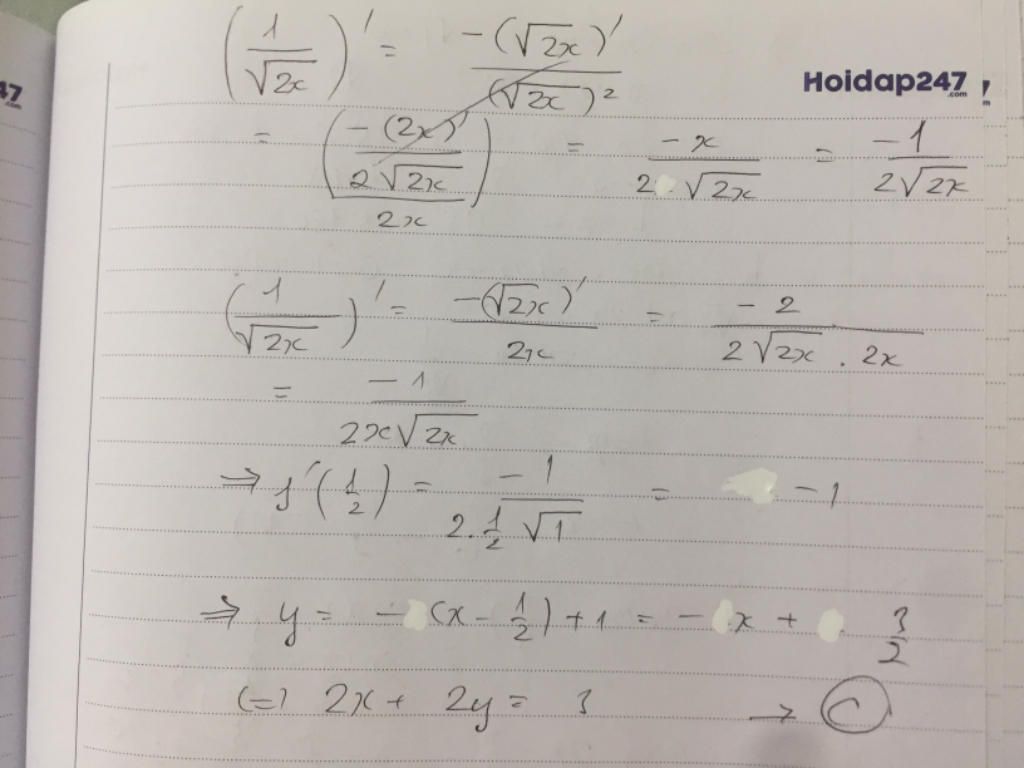 (1/√2x)' = -(√2x)'/(√2x)²
Hoidap247
.com
47
.com
= (-(2x)'/2√2x)/2x = -x/2 √2x = -1/2√2x
(1/√2x)' = -(√2x)'/2x = -2/2√2x . 2x
= -1/2x√2x
⇒ f'(1/2) = -1/2.1/2 √1 = -1
⇒ y = -(x - 1/2) + 1 = -x + 3/2
(=) 2x + 2y = 3 → C